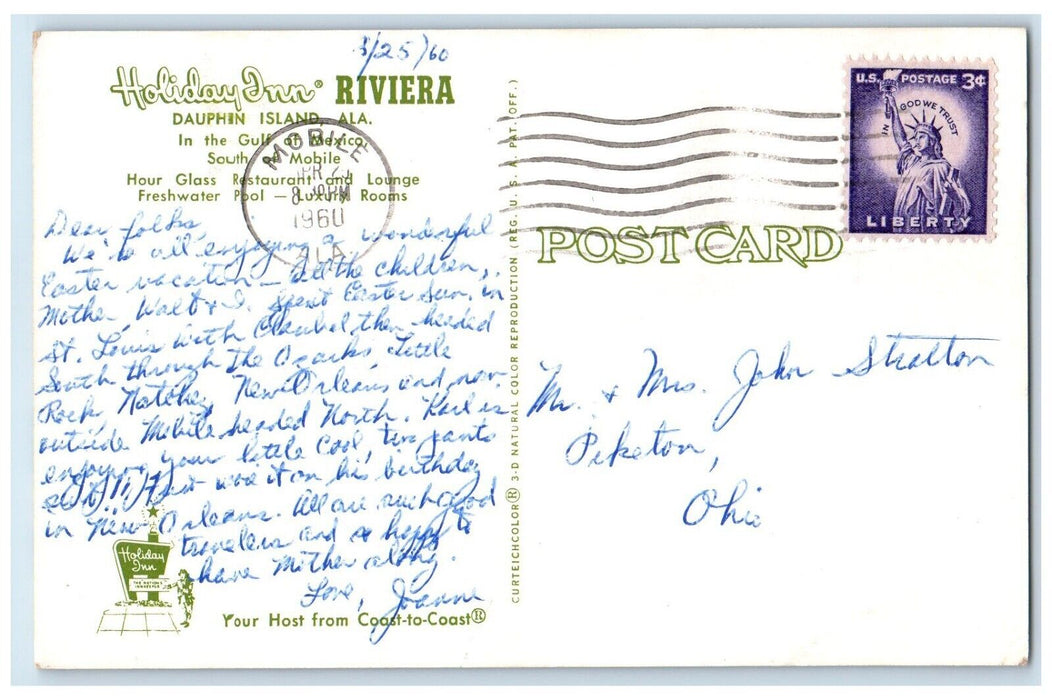 4/25/60
Holiday Inn® RIVIERA
DAUPHIN ISLAND, ALA.
In the Gulf of Mexico,
South of Mobile
Hour Glass Restaurant and Lounge
Freshwater Pool — Luxury Rooms
MOBILE
APR 2
8 PM
1960
ALA
U.S. POSTAGE 3¢
IN GOD WE TRUST
LIBERTY
POST CARD
CURTEICHCOLOR® 3-D NATURAL COLOR REPRODUCTION (REG. U. S. A. PAT. OFF.)
Dear folks,
We're all enjoying a wonderful
Easter vacation — all the children,
Mother, Walt & I. Spent Easter Sun. in
St. Louis with then headed
South through the Ozarks, Little
Rock, Natchez, New Orleans and now
outside Mobile headed North. Karl is
enjoying your little cool, two pants
suit! wore it on his birthday
in New Orleans. All are such good
travelers and so happy to
have Mother along.
Love, Joanne
Mr. & Mrs. John Stratton
Piketon,
Ohio
Holiday Inn
THE NATION'S INNKEEPER
Your Host from Coast-to-Coast®